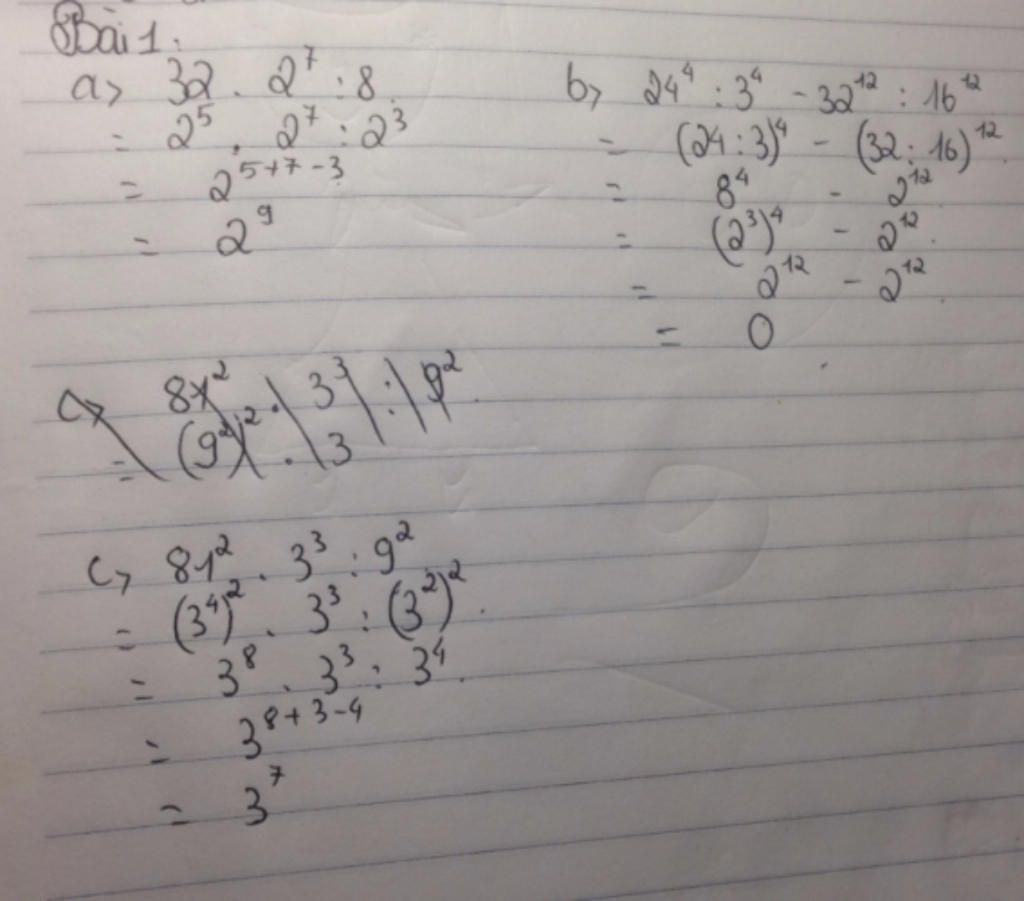 Bài 1:
a> 32 . 2⁷ : 8
= 2⁵ . 2⁷ : 2³
= 2⁵⁺⁷⁻³
= 2⁹
b> 24⁴ : 3⁴ - 32¹² : 16¹²
= (24 : 3)⁴ - (32 : 16)¹²
= 8⁴ - 2¹²
= (2³)⁴ - 2¹²
= 2¹² - 2¹²
= 0
c> 81² . 3³ : 9²
= (9²)² . 3
c> 81² . 3³ : 9²
= (3⁴)² . 3³ : (3²)²
= 3⁸ . 3³ : 3⁴
= 3⁸⁺³⁻⁴
= 3⁷